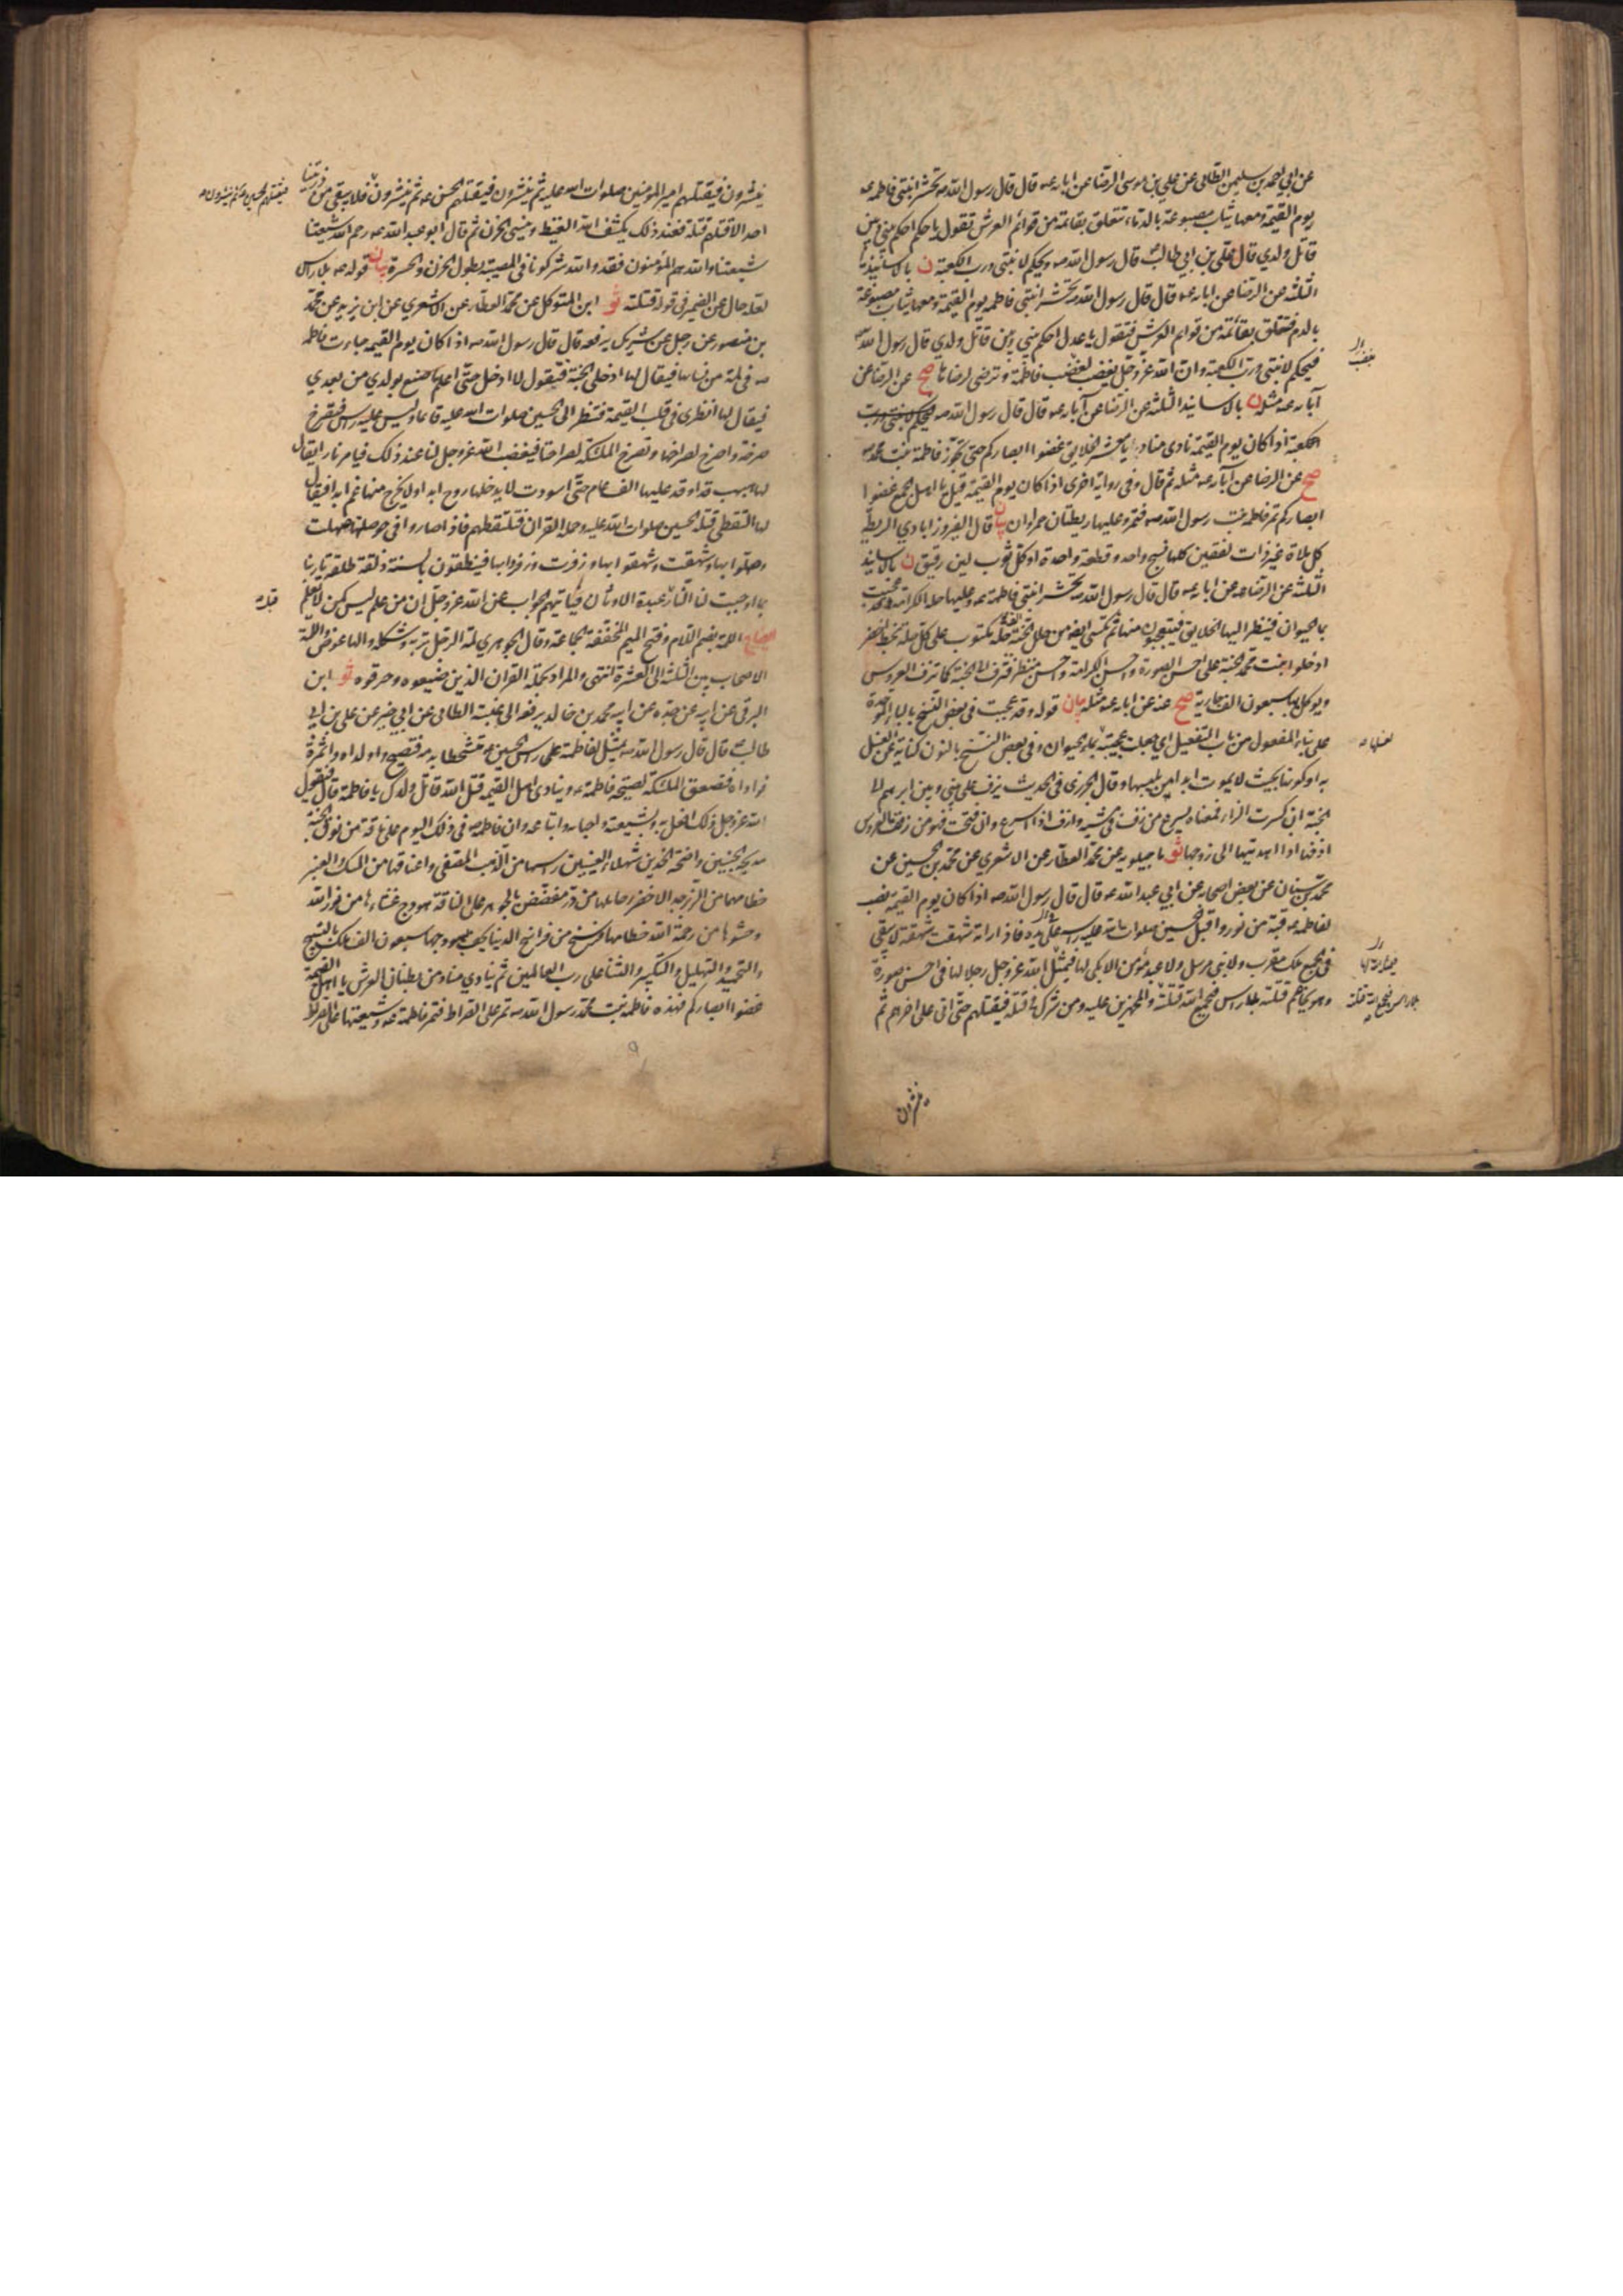 عن ابي احمد بن سليمن الطائي عن علي بن موسى الرضا عن ابائه عه قال قال رسول الله صه تحشر ابنتي فاطمه عه
يوم القيمة ومعها ثياب مصبوغة بالدماء تتعلق بقائمة من قوائم العرش تقول يا حكم احكم بيني وبين
قاتل ولدي قال علي بن ابي طالب قال رسول الله صه ويحكم لابنتي ورب الكعبة ن بالاسانيد
الثلثه عن الرضا عن ابائه عه قال قال رسول الله صه تحشر ابنتي فاطمه يوم القيمة ومعها ثياب مصبوغة
بالدم فتعلق بقائمة من قوائم العرش فتقول يا عدل احكم بيني وبين قاتل ولدي قال رسول الله صه
فيحكم لابنتي ورب الكعبة وان الله عز وجل يغضب لغضب فاطمة ويرضى لرضاها صح عن الرضا عن
آبائه عه مثله ن بالاسانيد الثلثة عن الرضا عن آبائه عه قال قال رسول الله صه فيحكم لابنتي ورب
الكعبة اذا كان يوم القيمة نادى مناد يا معشر الخلايق غضوا ابصاركم حتى تجوز فاطمة بنت محمد صه
صح عن الرضا عن آبائه عه مثله ثم قال وفي رواية اخرى اذا كان يوم القيمة قيل يا اهل الجمع غضوا
ابصاركم تمر فاطمة بنت رسول الله صه فتمر وعليها ريطتان حمراوان بيان قال الفيروزابادي الريطة
كل ملاة غير ذات لفقين كلها نسج واحد وقطعة واحدة او كل ثوب لين رقيق ن بالاسانيد
الثلثة عن الرضا عه عن ابائه عه قال قال رسول الله صه تحشر ابنتي فاطمة عه وعليها حلة الكرامة وقد عجنت
بماء الحيوان فينظر اليها الخلايق فيتعجبون منها ثم تكسى ايضا من حلل الجنة الف حلة مكتوب على كل حلة بخط اخضر
ادخلوا بنت محمد الجنة على احسن الصورة واحسن الكرامة واحسن منظر فتزف الى الجنة كما تزف العروس
ويوكل بها سبعون الف جارية صح عنه عن ابائه عه مثله بيان قوله وقد عجبت في بعض النسخ بالباء الموحدة
على بناء المفعول من باب التفعيل اي جعلت عجيبة بماء الحيوان وفي بعض النسخ بالنون كناية عن الغسل
به او كونها بحيث لا يموت ابدا من يلبسها وقال الجزري في الحديث يزف علي بيني وبين ابرهيم الى
الجنة ان كسرت الزاء فمعناه يسرع من زف في مشيه وازف اذا اسرع وان فتحت فهو من زففت العروس
ازفها اذا اهديتها الى زوجها ثو ماجيلويه عن محمد العطار عن الاشعري عن محمد بن الحسين عن
محمد بن سنان عن بعض اصحابه عن ابي عبد الله عه قال قال رسول الله صه اذا كان يوم القيمة نصب
لفاطمه عه قبة من نور واقبل الحسين صلوات الله عليه راسه على يده فاذا راته شهقت شهقة لا يبقى
في الجمع ملك مقرب ولا نبي مرسل ولا عبد مؤمن الا بكى لها فيمثل الله عز وجل رجلا لها في احسن صورة
وهو يخاصم قتلته بلا راس فيجمع الله قتلته والمجهزين عليه ومن شرك في قتله فيقتلهم حتى اتى على اخرهم ثم
ينشرون
ينشرون فيقتلهم امير المؤمنين صلوات الله عليه ثم ينشرون فيقتلهم الحسن عه ثم ينشرون فلا يبقى من ذريتنا
فيقتلهم الحسين عه ثم ينشرون صه
احد الا قتلهم قتلة فعند ذلك يكشف الله الغيظ وينسي الحزن ثم قال ابو عبد الله عه رحم الله شيعتنا
شيعتنا والله هم المؤمنون فقد والله شركونا في المصيبة بطول الحزن والحسرة بيان قوله عه بلا راس
لعله حال عن الضمير في قوله قتلته ثو ابن المتوكل عن محمد العطار عن الاشعري عن ابن يزيد عن محمد
بن منصور عن رجل عن شريك يرفعه قال قال رسول الله صه اذا كان يوم القيمه جاءت فاطمه
عه في لمة من نسائها فيقال لها ادخلي الجنة فتقول لا ادخل حتى اعلم ما صنع بولدي من بعدي
فيقال لها انظري في قلب القيمة فتنظر الى الحسين صلوات الله عليه قائما وليس عليه راس فتصرخ
صرخة واصرخ لصراخها وتصرخ الملئكة لصراخنا فيغضب الله عز وجل لنا عند ذلك فيامر نارا يقال
لها هبهب قد اوقد عليها الف عام حتى اسودت لا يدخلها روح ابدا ولا يخرج منها غم ابدا فيقال
لها التقطي قتلة الحسين صلوات الله عليه وحملة القران فتلتقطهم فاذا صاروا في حوصلتها صهلت
وصهلوا بها وشهقت وشهقوا بها وزفرت وزفروا بها فينطقون بالسنة ذلقة طلقة يا ربنا
بما اوجبت لنا النار قبل عبدة الاوثان فياتيهم الجواب عن الله عز وجل ان من علم ليس كمن لا يعلم
ايضاح اللمة بضم اللام وفتح الميم المخففة الجماعة وقال الجوهري لمة الرجل تربه وشكله والهاء عوض واللمة
الاصحاب بين الثلثة الى العشرة انتهى والمراد بحملة القران الذين ضيعوه وحرفوه ثو ابن
البرقي عن ابيه عن جده عن ابيه محمد بن خالد يرفعه الى عنبسة الطائي عن ابي خير عن علي بن ابي
طالب عه قال قال رسول الله صه يمثل لفاطمة عه راس الحسين عه متشحطا بدمه فتصيح وا ولداه وا ثمرة
فؤاداه فتصعق الملئكة لصيحة فاطمة عه وينادى اهل القيمة قتل الله قاتل ولدك يا فاطمة قال فيقول
الله عز وجل ذلك افعل به وبشيعته واحبائه واتباعه وان فاطمه عه في ذلك اليوم على ناقة من نوق الجنة
مدبجة الجنبين واضحة الخدين شهلاء العينين راسها من الذهب المصفى واعناقها من المسك والعنبر
خطامها من الزبرجد الاخضر رحائلها من در مفضض بالجوهر على الناقة هودج غشاءها من نور الله
وحشوها من رحمة الله خطامها فرسخ من فراسخ الدنيا يحف بهودجها سبعون الف ملك بالتسبيح
والتحميد والتهليل والتكبير والثناء على رب العالمين ثم ينادي مناد من بطنان العرش يا اهل القيمة
غضوا ابصاركم فهذه فاطمه بنت محمد رسول الله صه تمر على الصراط فتمر فاطمة عه وشيعتها على الصراط